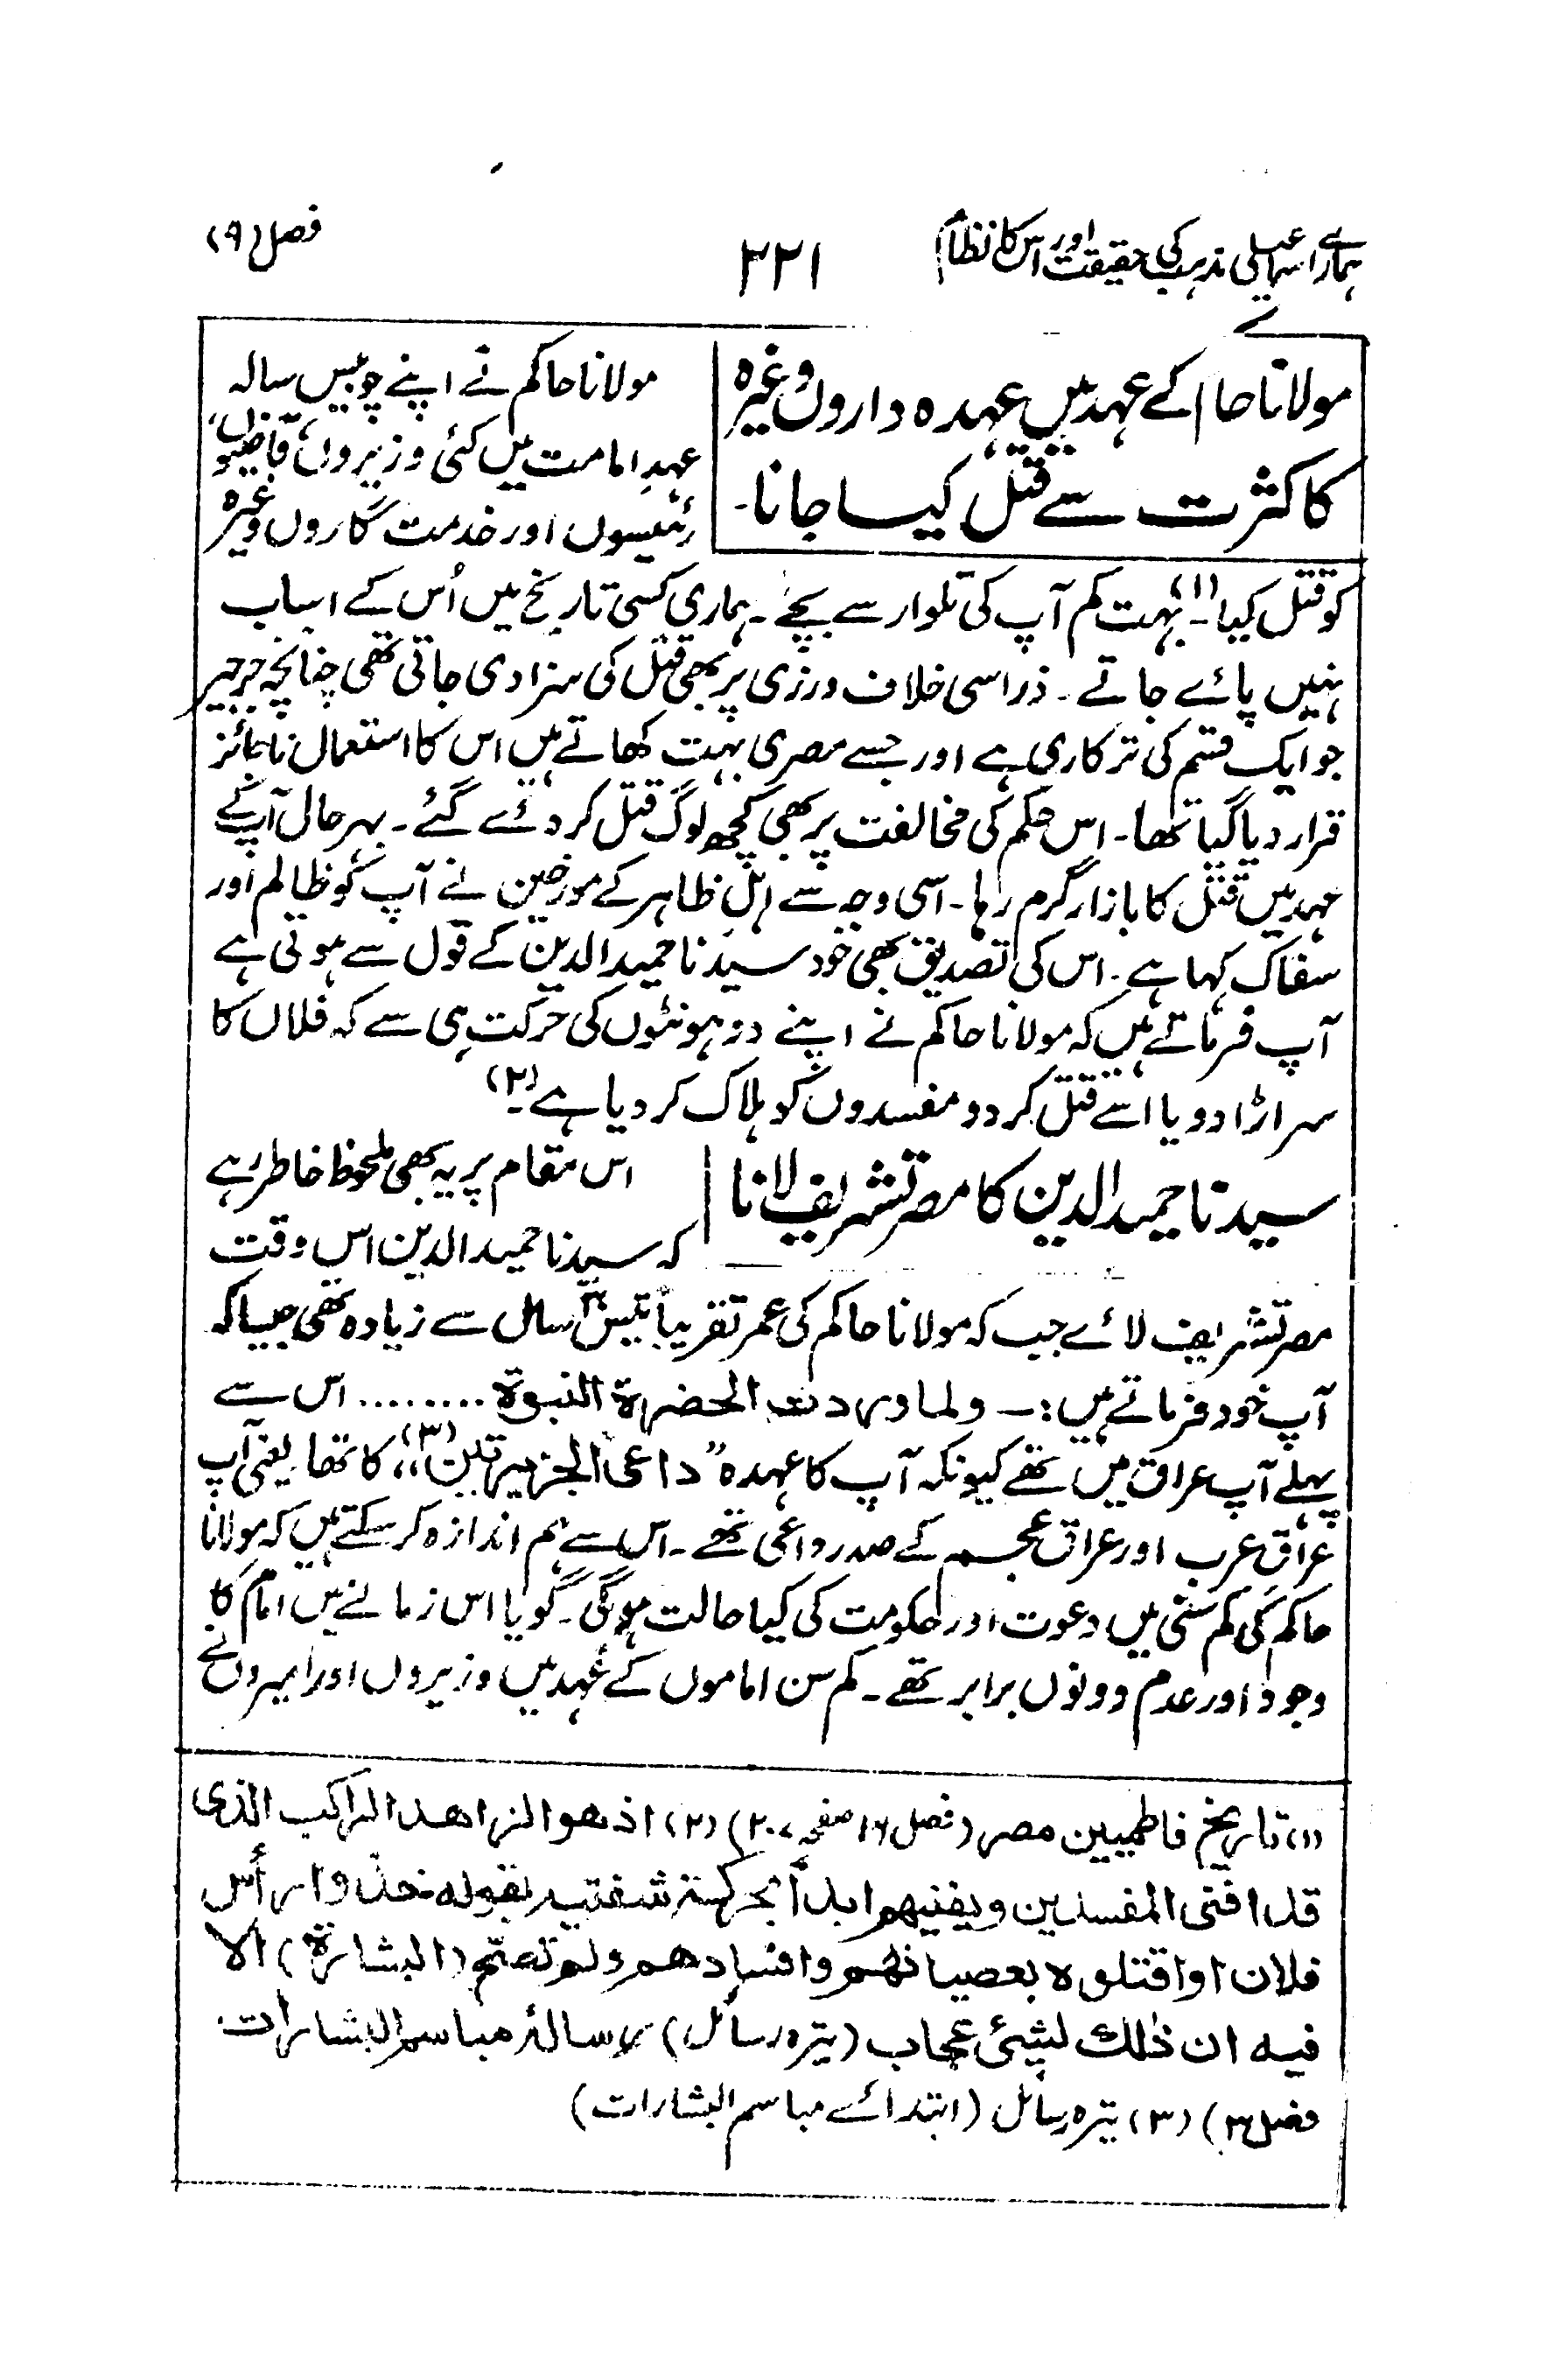 ہمارے اسماعیلی مذہب کی حقیقت اور اس کا نظام
۲۲۱
فصل (۹)
مولانا حاکم کے عہد میں عہدہ داروں وغیرہ
کا کثرت سے قتل کیا جانا۔
مولانا حاکم نے اپنے چوبیس سالہ
عہدِ امامت میں کئی وزیروں، قاضیوں،
رئیسوں اور خدمت گاروں وغیرہ
کو قتل کیا۔(۱) بہت کم آپ کی تلوار سے بچے۔ ہماری کسی تاریخ میں اُس کے اسباب
نہیں پائے جاتے۔ ذرا سی خلاف ورزی پر بھی قتل کی سزا دی جاتی تھی چنانچہ جرجیر
جو ایک قسم کی ترکاری ہے اور جسے مصری بہت کھاتے ہیں اس کا استعمال ناجائز
قرار دیا گیا تھا۔ اس حکم کی مخالفت پر بھی کچھ لوگ قتل کر دئے گئے۔ بہر حال آپ کے
عہد میں قتل کا بازار گرم رہا۔ اسی وجہ سے اہلِ ظاہر کے مورخین نے آپ کو ظالم اور
سفاک کہا ہے۔ اس کی تصدیق بھی خود سیدنا حمید الدین کے قول سے ہوتی ہے
آپ فرماتے ہیں کہ مولانا حاکم نے اپنے دو ہونٹوں کی حرکت ہی سے کہ فلاں کا
سر اڑا دو یا اسے قتل کر دو مفسدوں کو ہلاک کر دیا ہے۔(۲)
سیدنا حمید الدین کا مصر تشریف لانا
اس مقام پر یہ بھی ملحوظ خاطر رہے
کہ سیدنا حمید الدین اس وقت
مصر تشریف لائے جب کہ مولانا حاکم کی عمر تقریباً سال سے زیادہ تھی جیسا کہ
آپ خود فرماتے ہیں:۔ ولما وردت الحضرة النبوة ........ اس سے
پہلے آپ عراق میں تھے کیونکہ آپ کا عہدہ "داعی الجزیرتین" (۳) کا تھا یعنی آپ
عراق عرب اور عراق عجم کے صدر داعی تھے۔ اس سے ہم اندازہ کر سکتے ہیں کہ مولانا
حاکم کی کم سنی میں دعوت اور حکومت کی کیا حالت ہوگی۔ گویا اس زمانے میں امام کا
وجود اور عدم دونوں برابر تھے۔ کم سن اماموں کے عہد میں وزیروں اور امیروں نے
(۱) تاریخ فاطمیین مصر (فصل ۱۶ صفحہ ۲۰۷) (۲) اذ هو الزاهد الراكب الذى
قد افنى المفسدين ويفنيهم ابدا بحركة شفتيه بقوله خذوا رأس
فلان او اقتلوه بعصيانهم وافسادهم ولم (البشارة) الا
فيه ان ذلك لشئ عجاب (تیرہ رسائل) رسالۂ مباسم البشارات
فصل ۳) (۳) تیرہ رسائل (ابتدائے مباسم البشارات)